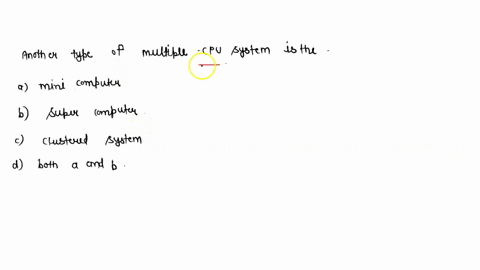 Another type of multiple CPU system is the .
a) mini computer
b) super computer
c) clustered system
d) both a and b .